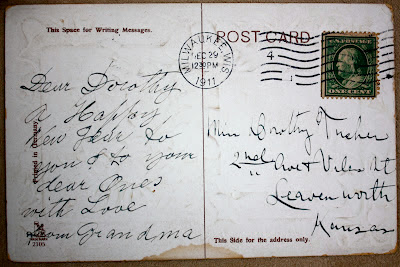 This Space for Writing Messages.
POST CARD
MILWAUKEE, WIS
DEC 29
12 30 PM
1911
4
1
ONE CENT
Dear Dorothy
A Happy
New Year to
you & to your
dear Ones
with Love
from Grandma
Printed in Germany
2105
Miss Dorothy
2nd Ave &
Leavenworth
Kansas
This Side for the address only.